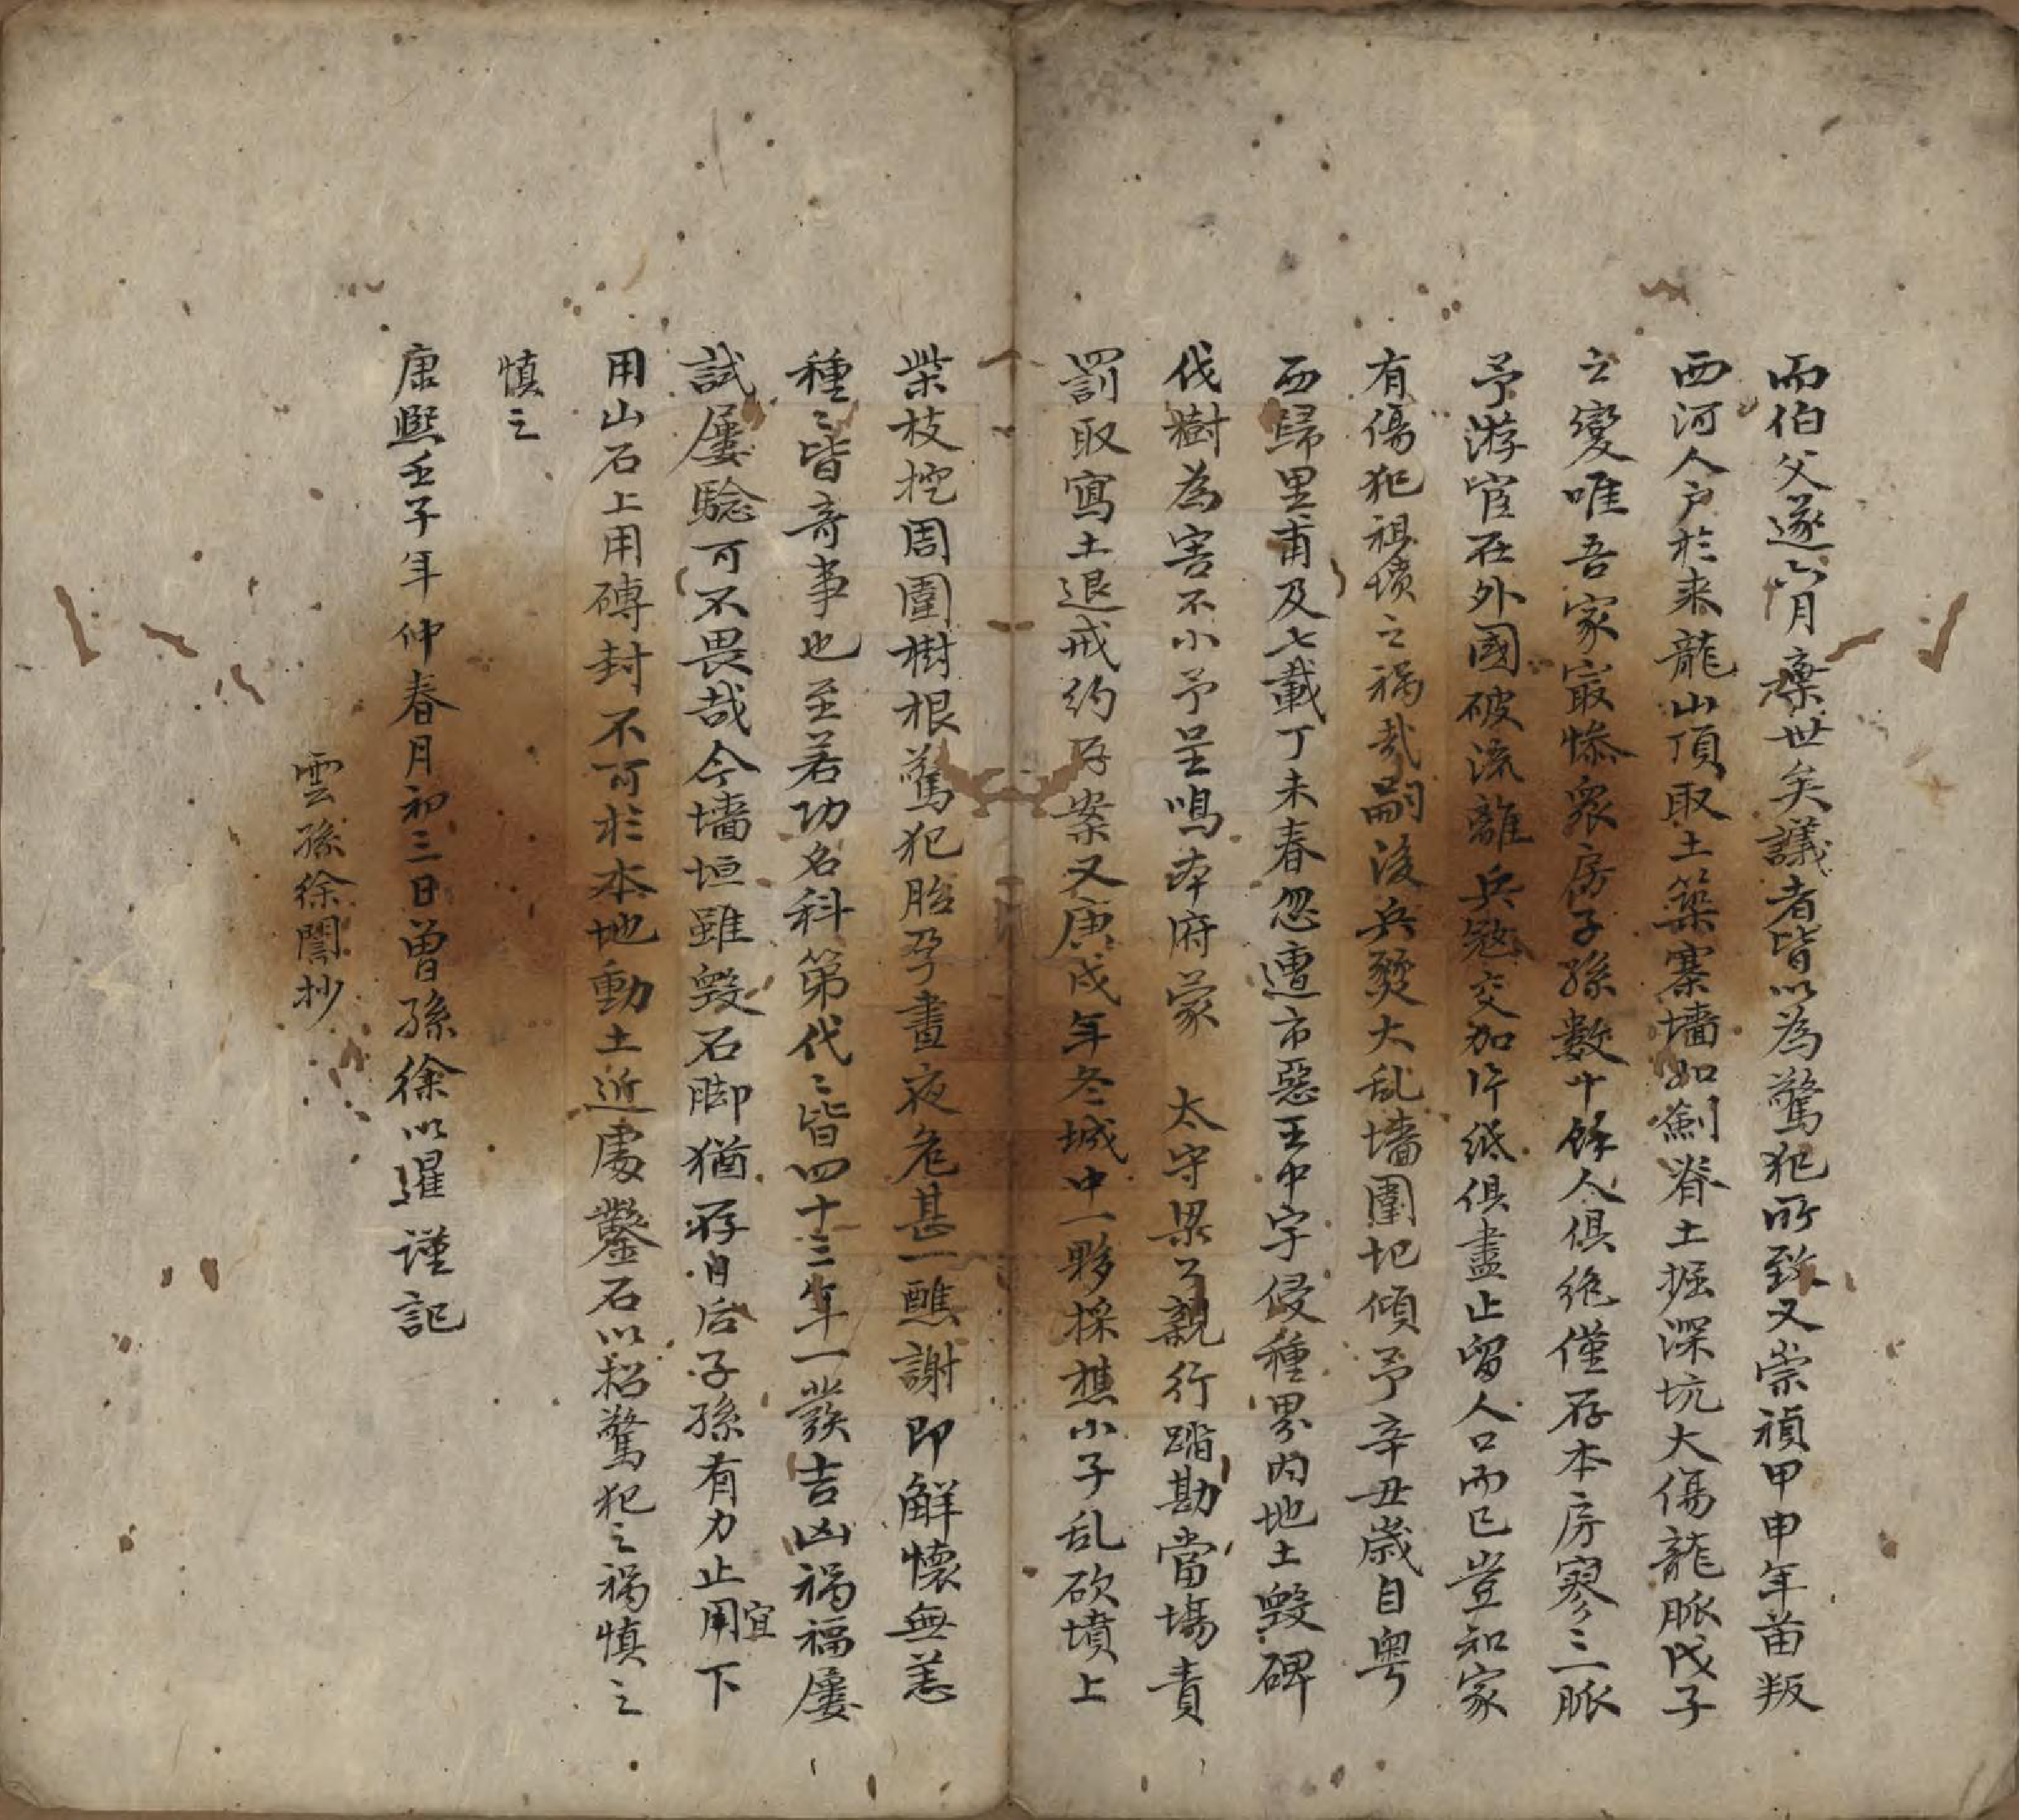 而伯父遂六月棄世矣議者皆以為驚犯所致又崇禎甲申年苗叛
西河人户於来龍山頂取土築寨墻如劍脊土掘深坑大傷龍脈戊子
之變唯吾家最慘衆房子孫數十餘人俱絶僅存本房寥〻一脈
予游宦在外國破流離兵寇交加片紙俱盡止留人口而已豈知家
有傷犯祖墳之禍哉嗣後兵燹大乱墻圍圯傾予辛丑歲自粤
西歸里甫及七載丁未春忽遭市惡王中宇侵種界内地土毀碑
伐樹為害不小予呈鳴本府蒙　太守梁公親行踏勘當場責
罰取寫土退戒約存案又庚戌年冬城中一夥採樵小子乱砍墳上
柴枝挖周圍樹根驚犯胎孕晝夜危甚一醮謝即解懷無恙
種〻皆竒事也至若功名科第代〻皆四十三年一發吉凶禍福屢
試屢騐可不畏哉今墻垣雖毀石脚猶存自后子孫有力止用宜下
用山石上用磚封不可於本地動土近處鑿石以招驚犯之禍慎之
慎之
康熙壬子年仲春月初三日曽孫徐以暹謹記
雲孫徐誾抄